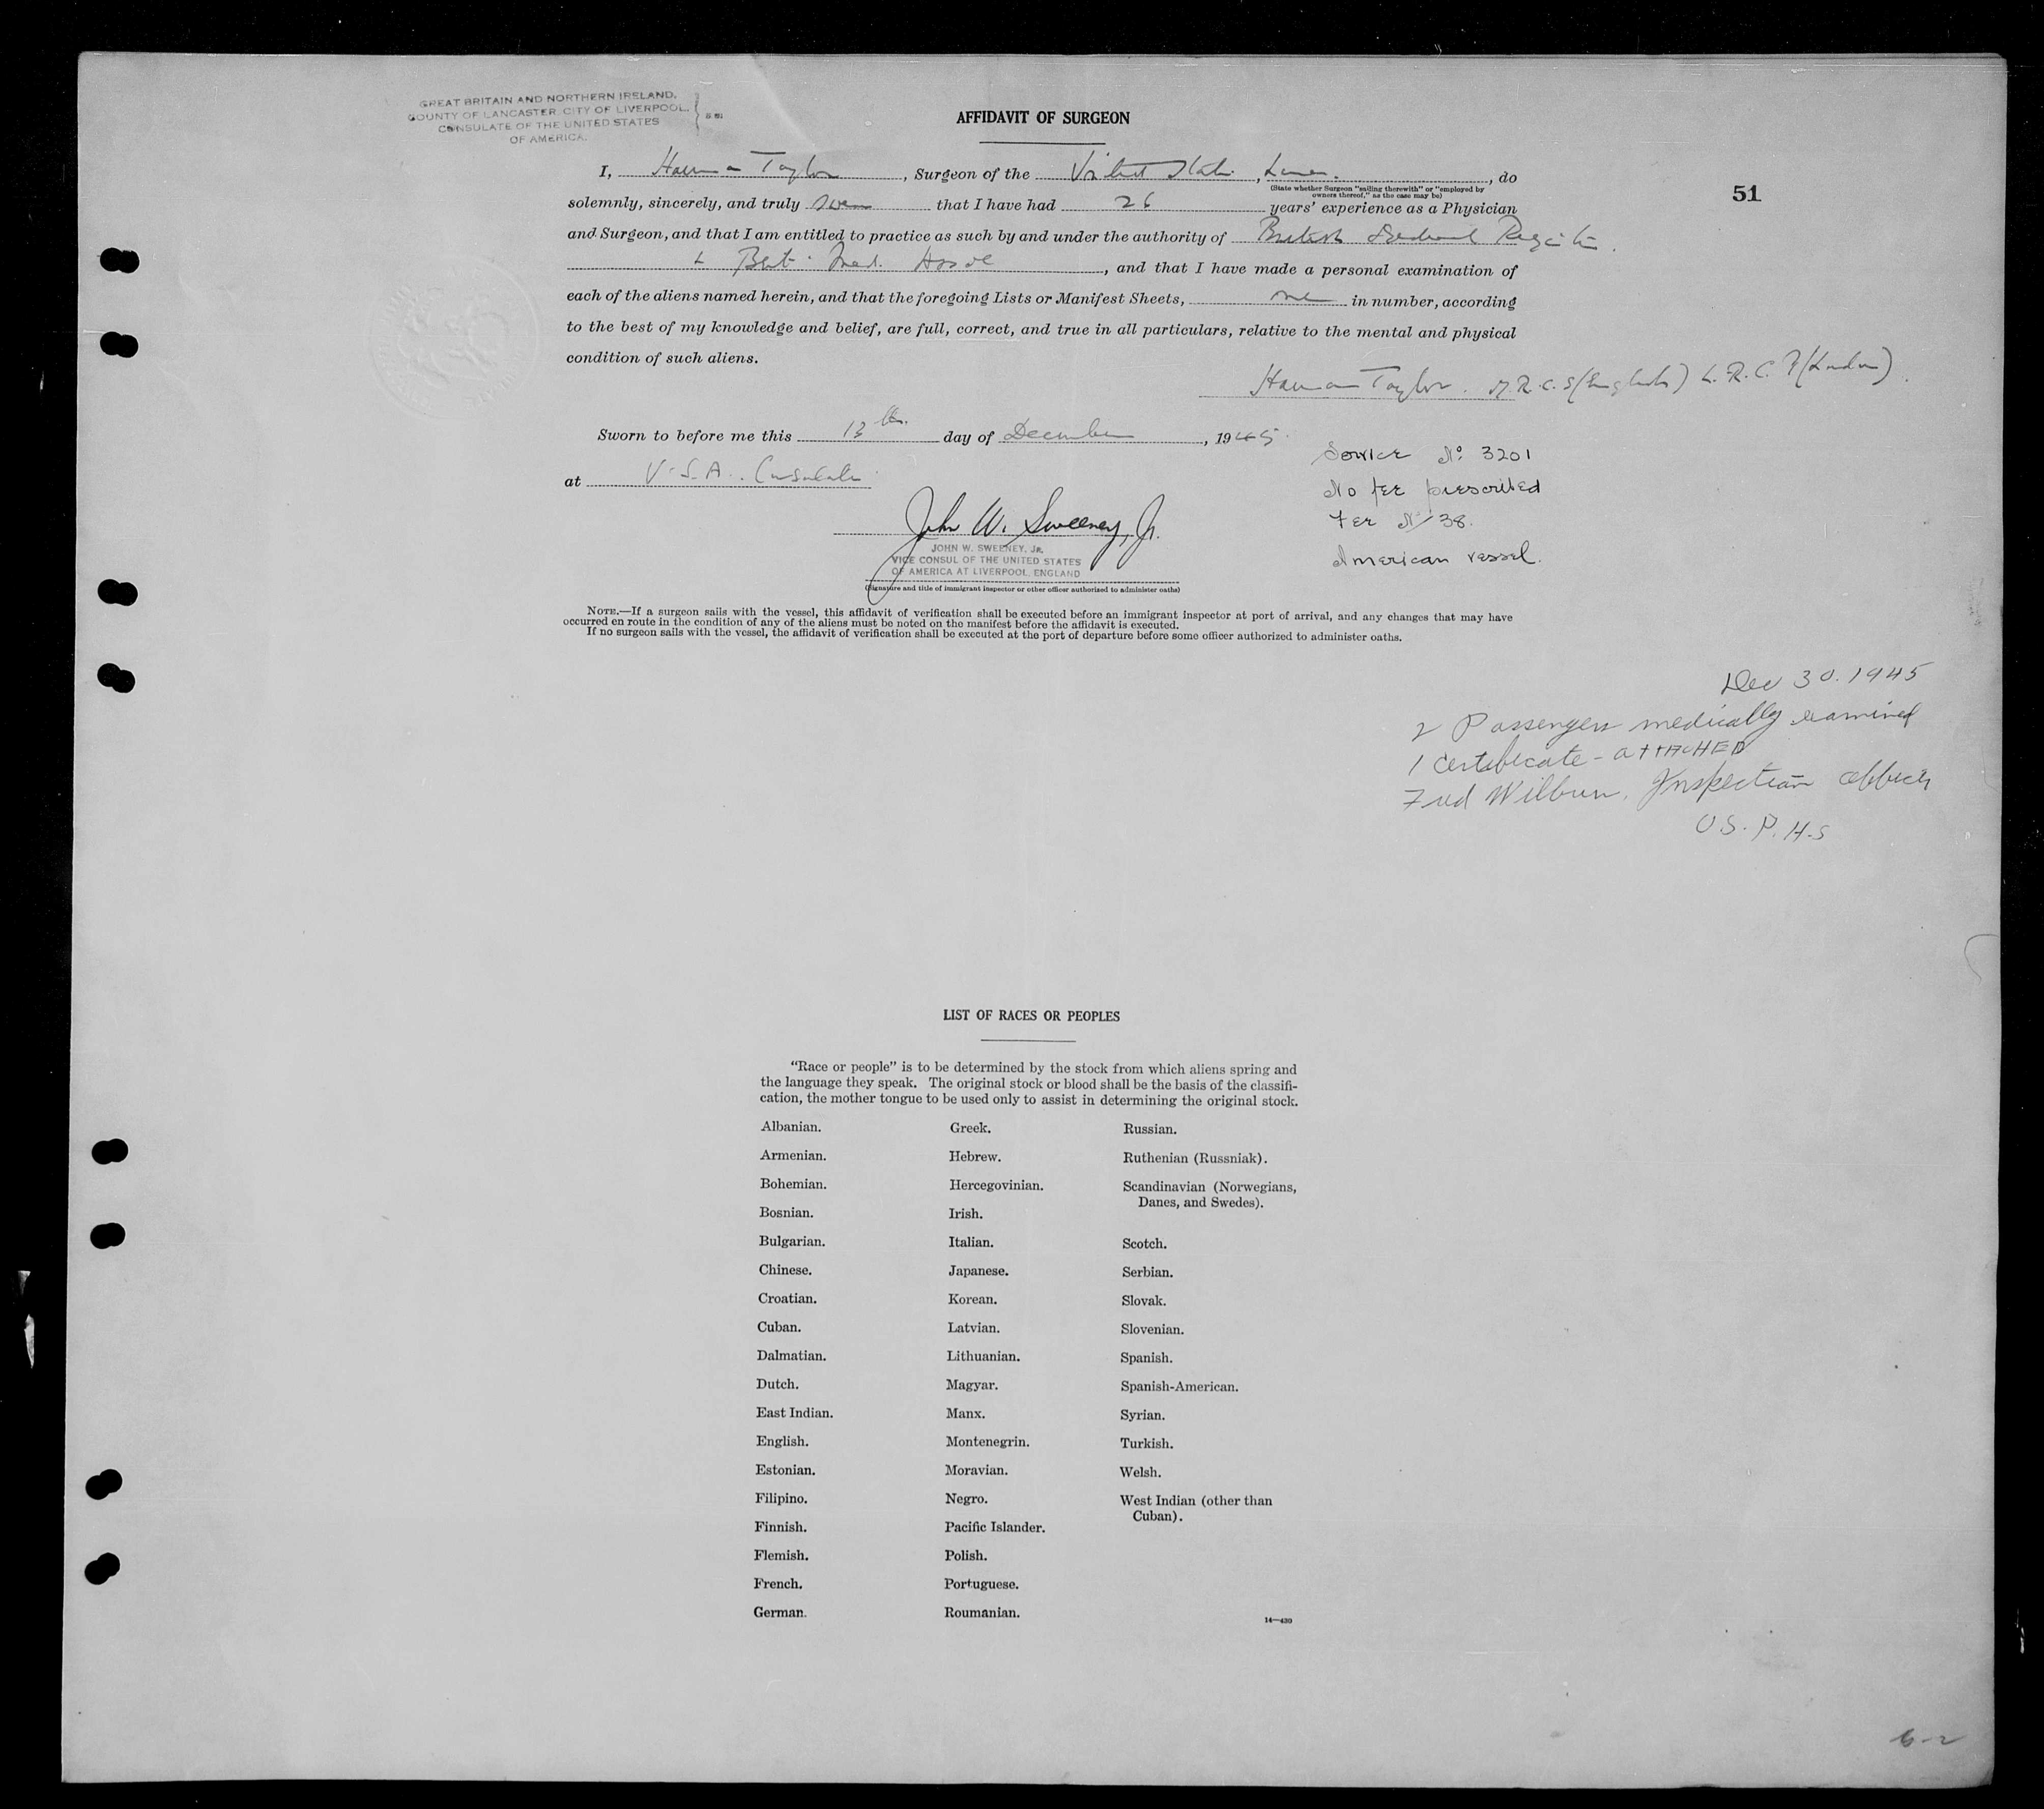 GREAT BRITAIN AND NORTHERN IRELAND,
COUNTY OF LANCASTER, CITY OF LIVERPOOL,
CONSULATE OF THE UNITED STATES
OF AMERICA.
} SS
AFFIDAVIT OF SURGEON
51
I, Taylor, Surgeon of the , , do
(State whether Surgeon "sailing therewith" or "employed by
owners thereof," as the case may be)
solemnly, sincerely, and truly that I have had 26 years' experience as a Physician
and Surgeon, and that I am entitled to practice as such by and under the authority of British
Med. , and that I have made a personal examination of
each of the aliens named herein, and that the foregoing Lists or Manifest Sheets, one in number, according
to the best of my knowledge and belief, are full, correct, and true in all particulars, relative to the mental and physical
condition of such aliens.
Taylor. M.R.C.S (England) L.R.C.P (London).
Sworn to before me this 13th. day of December, 1945
at U.S.A. Consulate
Service No. 3201
No fee prescribed
American vessel.
John W. Sweeney, Jr.
JOHN W. SWEENEY, JR.
VICE CONSUL OF THE UNITED STATES
OF AMERICA AT LIVERPOOL, ENGLAND
(Signature and title of immigrant inspector or other officer authorized to administer oaths)
NOTE.—If a surgeon sails with the vessel, this affidavit of verification shall be executed before an immigrant inspector at port of arrival, and any changes that may have
occurred en route in the condition of any of the aliens must be noted on the manifest before the affidavit is executed.
If no surgeon sails with the vessel, the affidavit of verification shall be executed at the port of departure before some officer authorized to administer oaths.
Dec 30. 1945
2 Passengers medically examined
1 Certificate - ATTACHED
Fred Wilbur, Inspection officer
U.S.P.H.S
LIST OF RACES OR PEOPLES
"Race or people" is to be determined by the stock from which aliens spring and
the language they speak. The original stock or blood shall be the basis of the classifi-
cation, the mother tongue to be used only to assist in determining the original stock.
Albanian.
Armenian.
Bohemian.
Bosnian.
Bulgarian.
Chinese.
Croatian.
Cuban.
Dalmatian.
Dutch.
East Indian.
English.
Estonian.
Filipino.
Finnish.
Flemish.
French.
German.
Greek.
Hebrew.
Hercegovinian.
Irish.
Italian.
Japanese.
Korean.
Latvian.
Lithuanian.
Magyar.
Manx.
Montenegrin.
Moravian.
Negro.
Pacific Islander.
Polish.
Portuguese.
Roumanian.
Russian.
Ruthenian (Russniak).
Scandinavian (Norwegians,
Danes, and Swedes).
Scotch.
Serbian.
Slovak.
Slovenian.
Spanish.
Spanish-American.
Syrian.
Turkish.
Welsh.
West Indian (other than
Cuban).
14—430
6-2